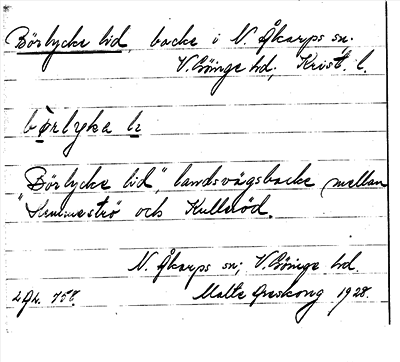 Börlycke lid, backe i N. Åkarps sn.
V. Göinge hd, Krist. l.
börlyka li
"Börlycke lid", landsvägsbacke mellan
och Kulleröd.
N. Åkarps sn; V. Göinge hd.
Malte Areskoug 1928.